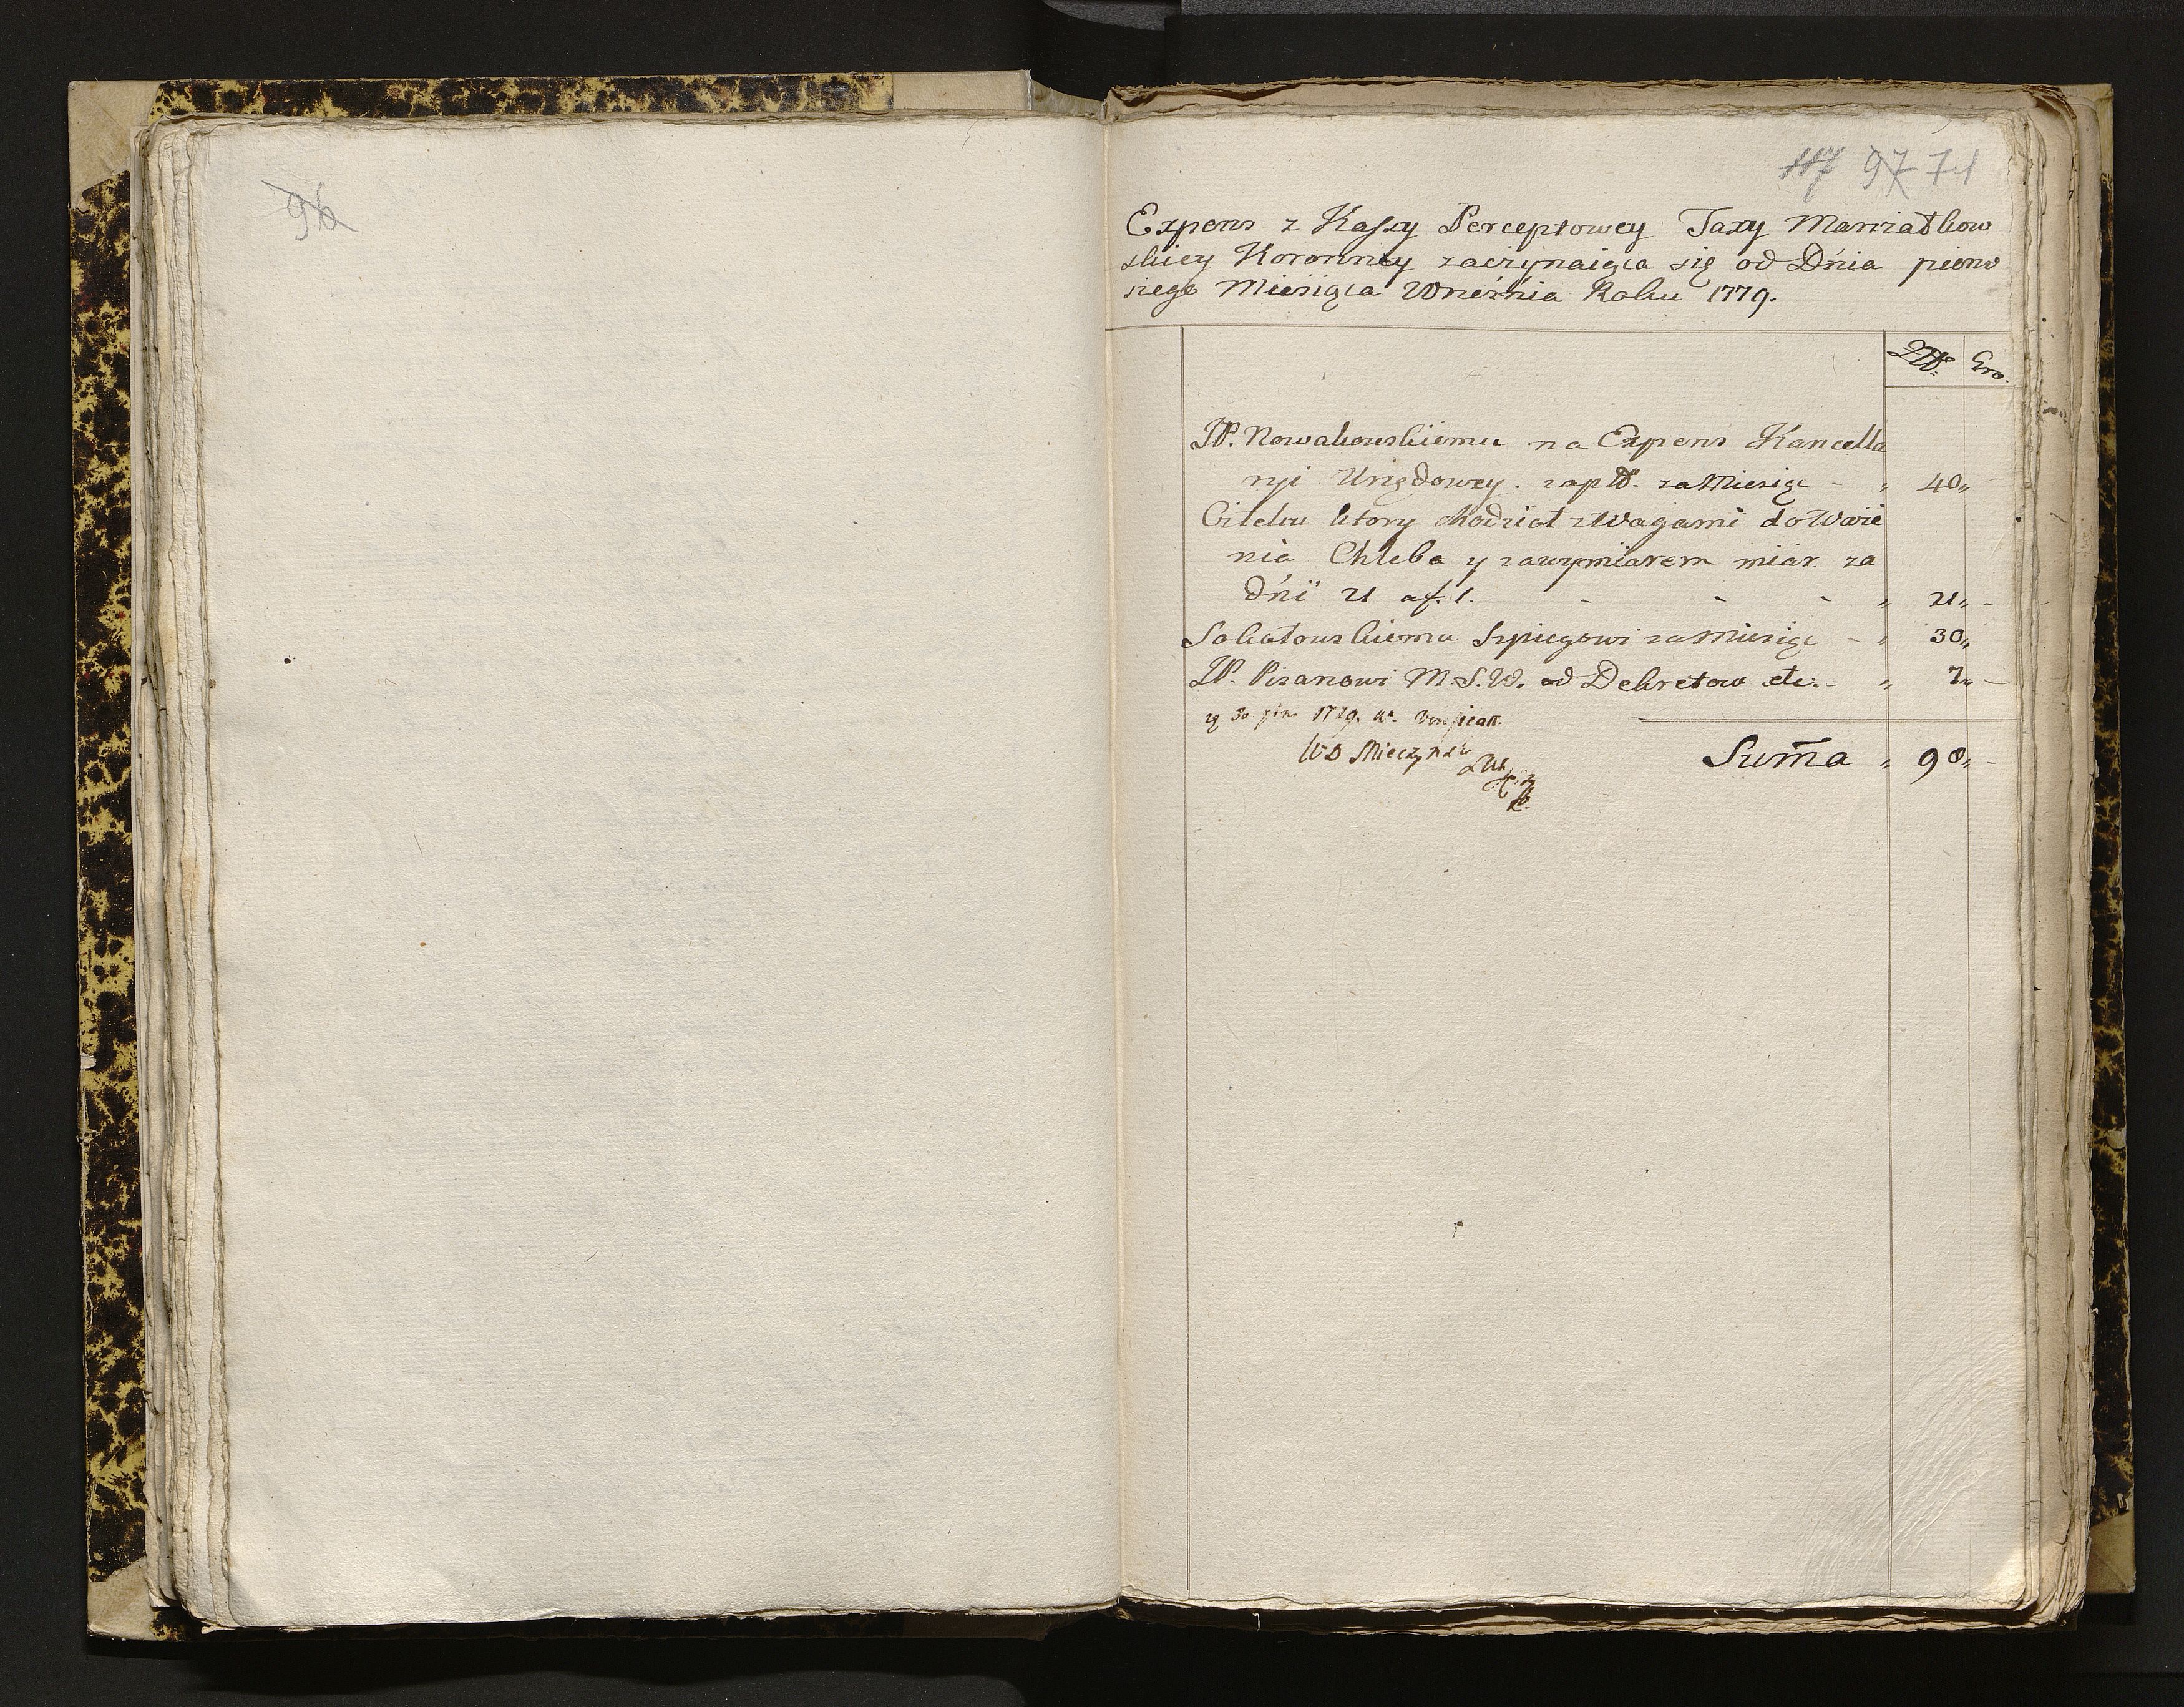 96
117 97 71
Expens z Kassy Perceptowey Taxy Marszałkow
skiey Koronney zaczynaiąca się od Dńia pierw
szego Miesiąca Wrzesnia Roku 1779.
Złł. Gro.
JP. Nowakowskiemu na Expens Kancella
ryi Urzędowey. za Miesiąc - " 40"
ktory chodził z Wagami do Waże
nia Chleba y za wymiarem miar. za
dńi 21 a f. 1. - - - " 21" -
Sokołowskiemu Szpiegowi za Miesiąc - " 30"
JP. Pisarzowi M.S.W. od Dekretow etc. - " 7" -
30. 1779.
Mieczyński
Sum̃a " 98" -